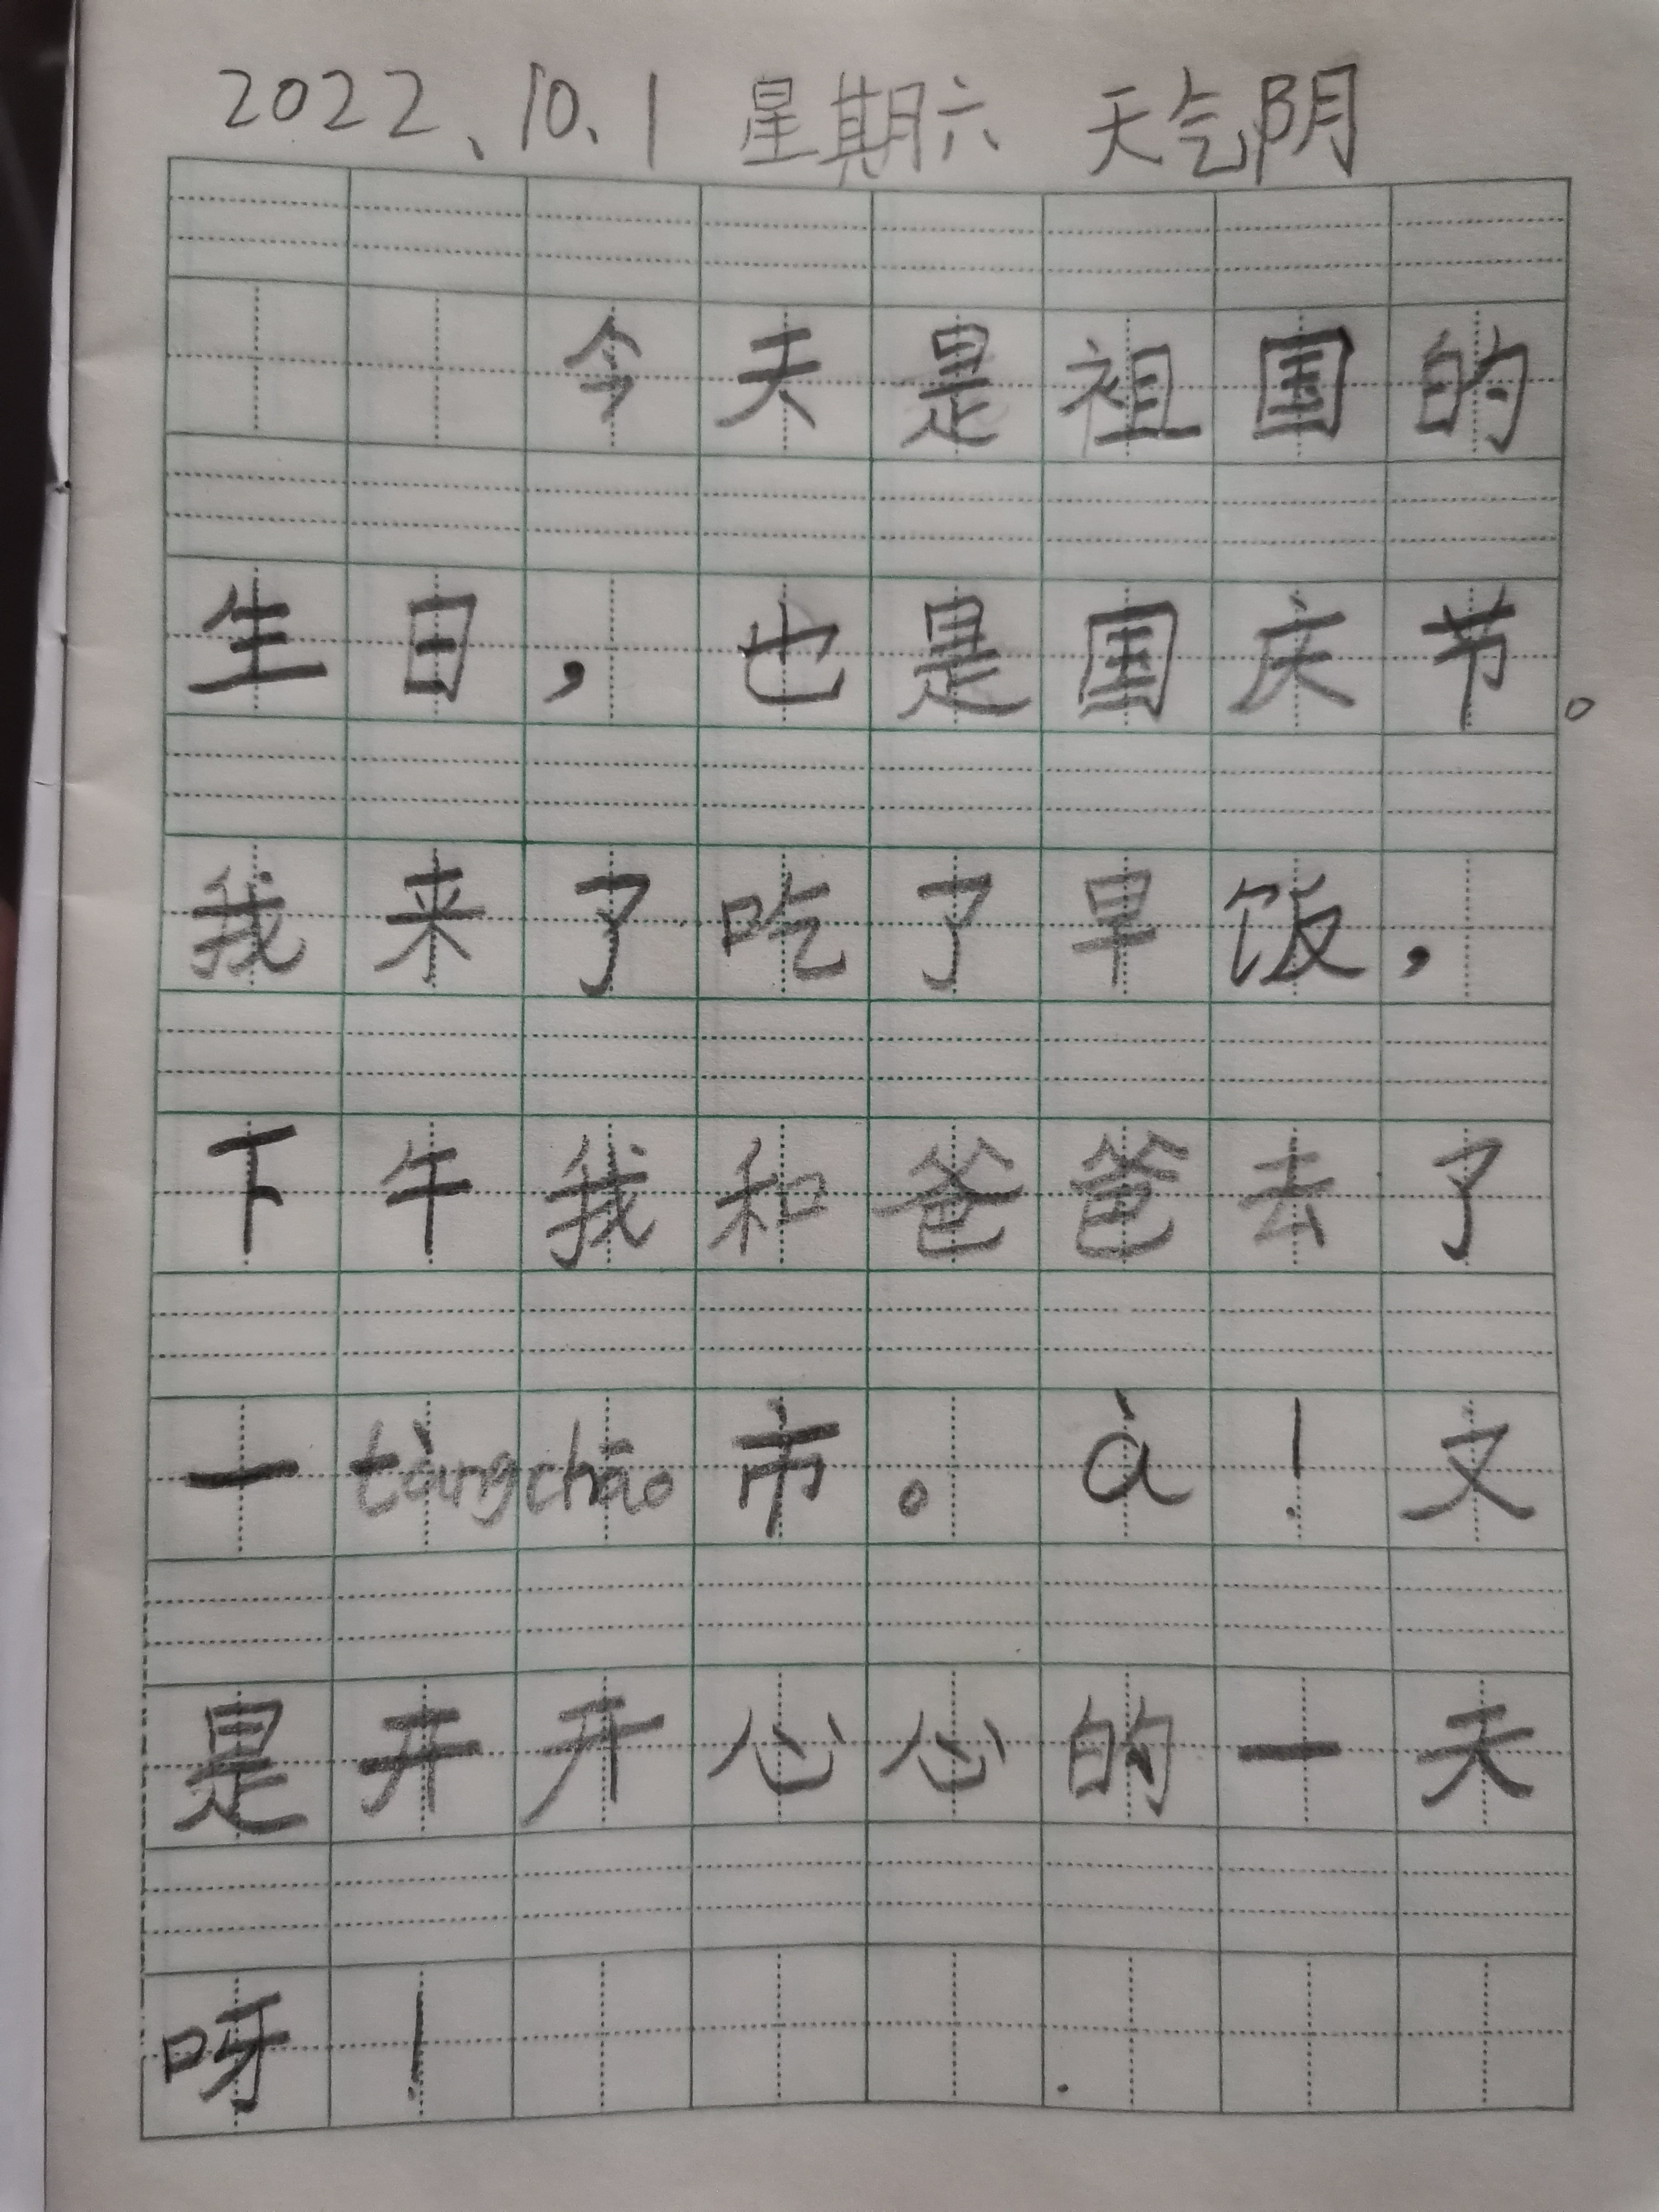 2022、10、1 星期六 天气阴
今天是祖国的
生日，也是国庆节。
我来了吃了早饭，
下午我和爸爸去了
一tàngchāo市。à！又
是开开心心的一天
呀！